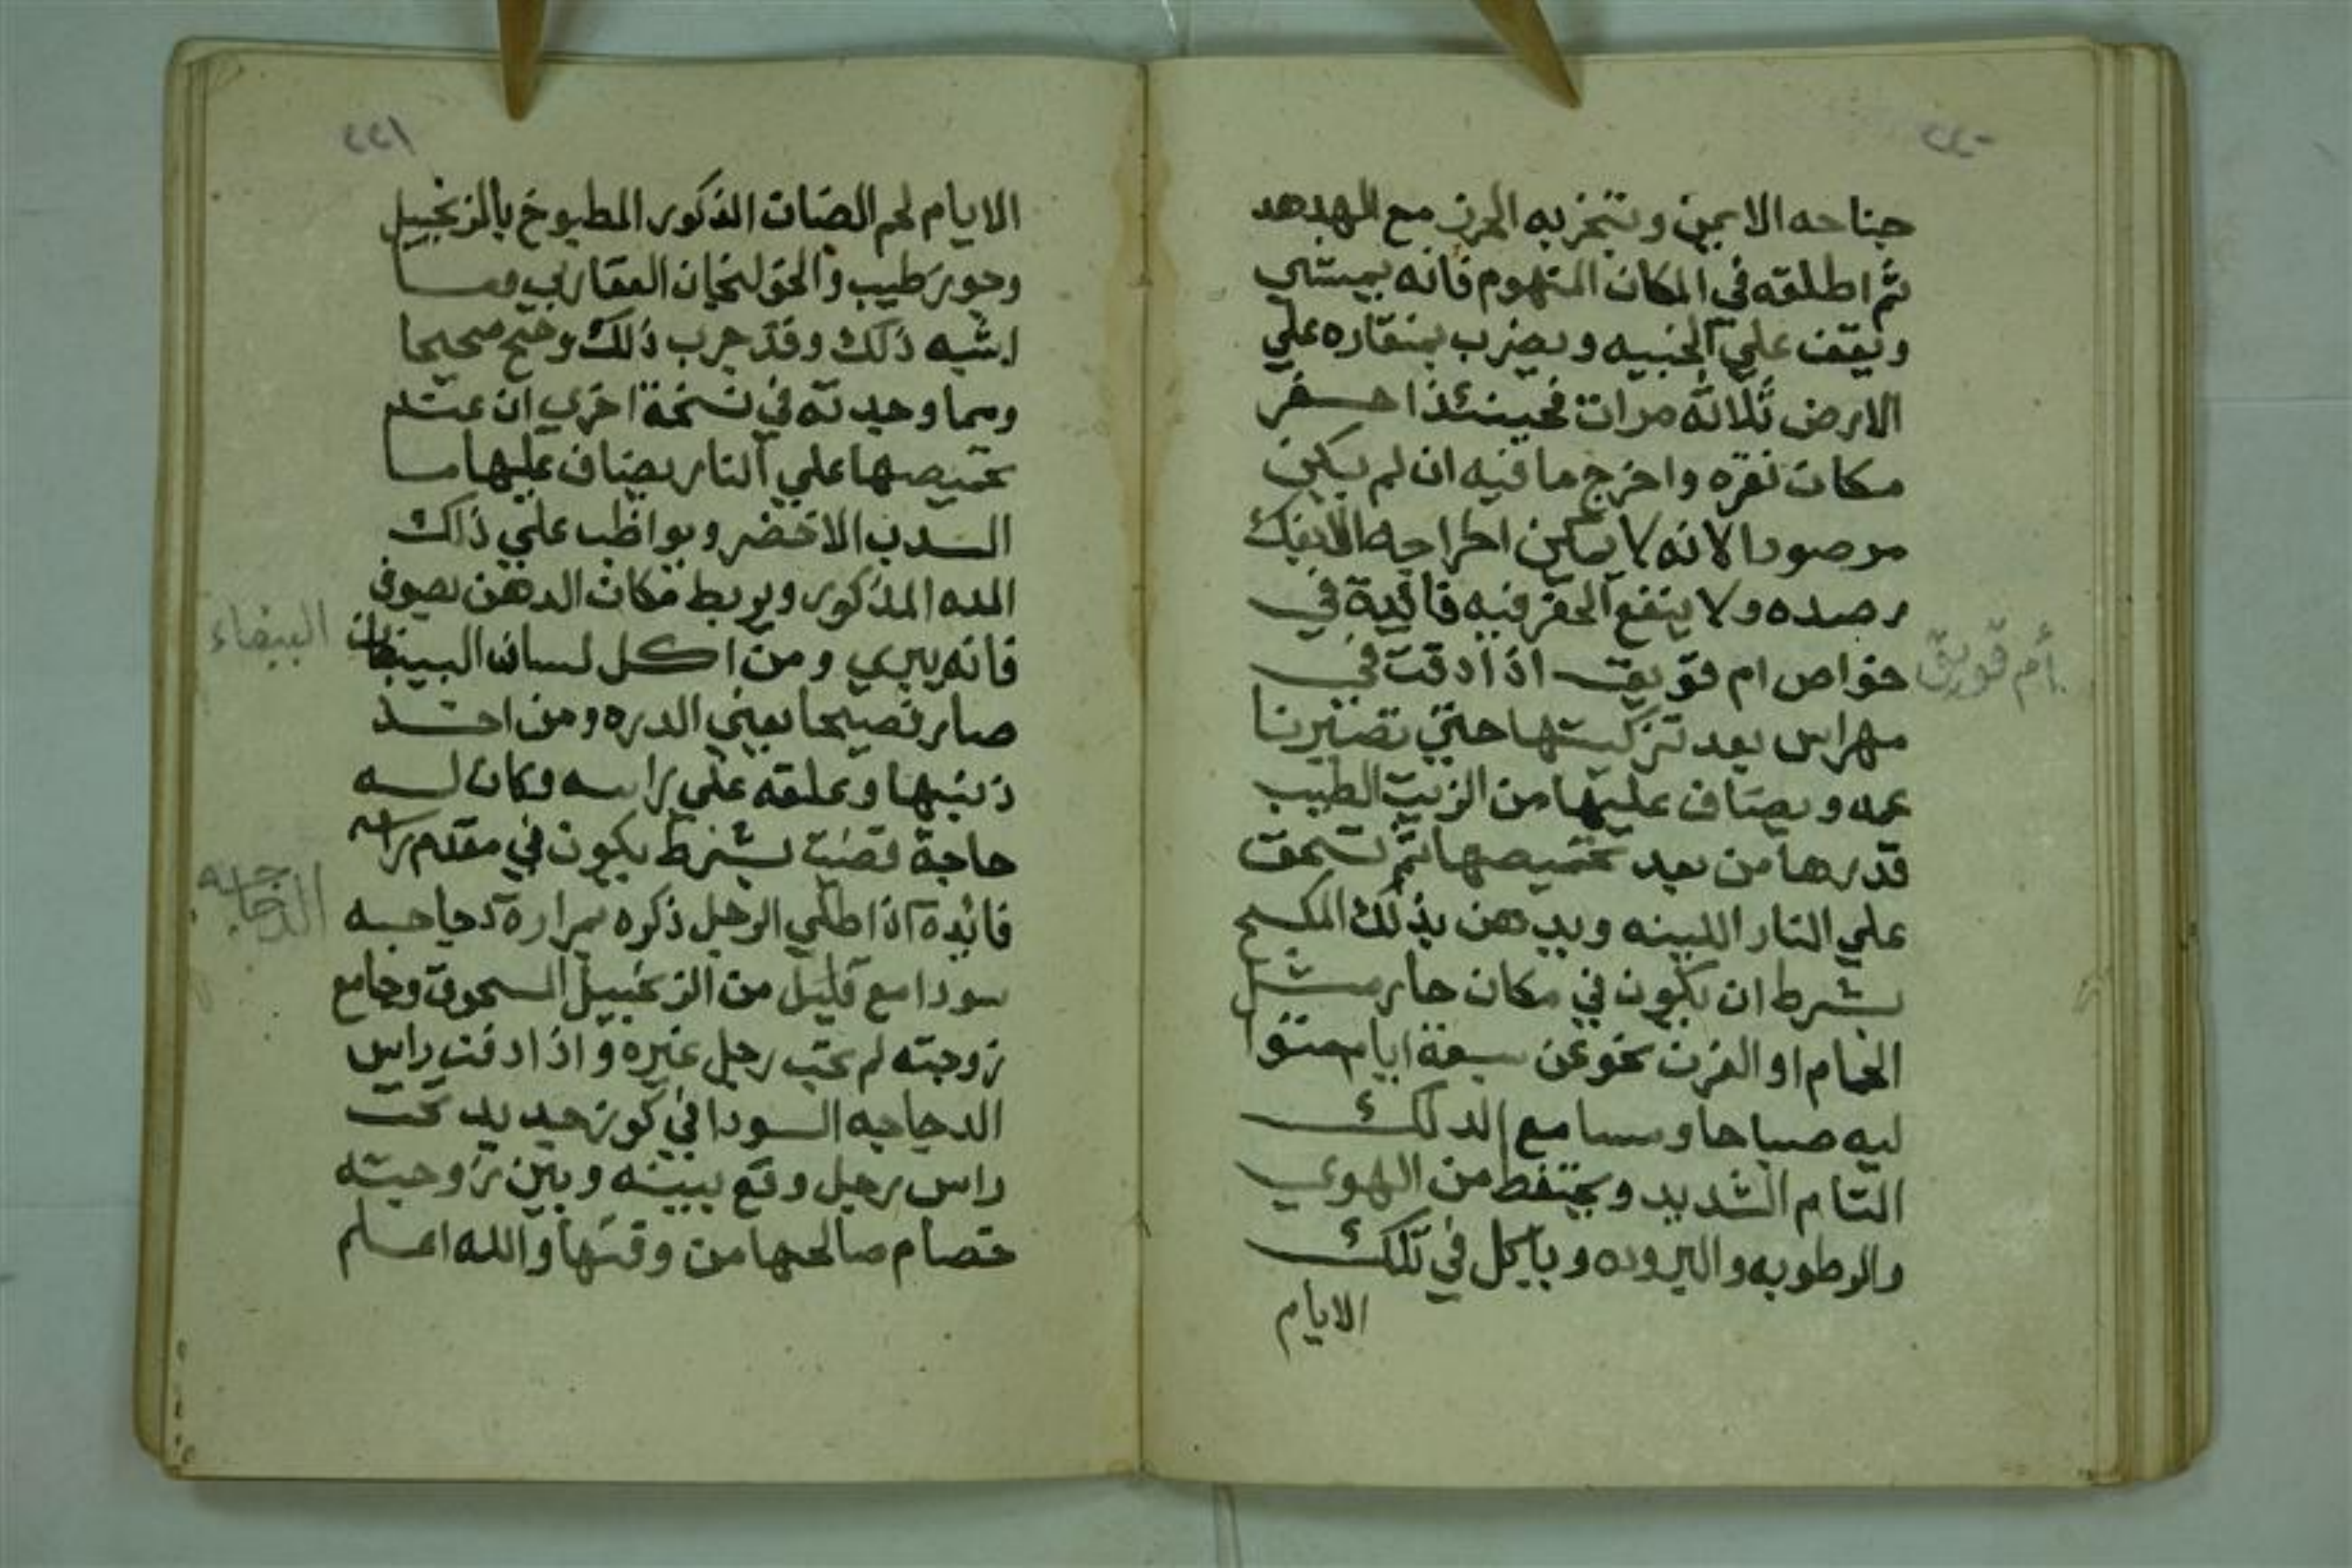 ٢٢٠
جناحه الايمن وتبخر به الحرز مع الهدهد
ثم اطلقه في المكان المتهوم فانه يمشي
ويقف علي الخبيه ويضرب بمنقاره علي
الارض ثلاثة مرات فحينئذ احفر
مكان نقره واخرج ما فيه ان لم يكن
مرصودا لانه لا يمكن اخراجه الا بفك
رصده ولا ينفع الحفر فيه فائدة في
أم قويق
خواص ام قويق اذا دقت في
مهراس بعد تزكيتها حتي تصير نا
عمه ويضاف عليها من الزيت الطيب
قدرها من بعد تحميصها ثم تسحق
علي النار اللينه ويدهن بذلك المكسح
بشرط ان يكون في مكان حار مثل
الحمام او الفرن نحو عن سبعة ايام متوا
ليه صباحا ومسا مع الدلك
التام الشديد ويحتفظ من الهوي
والرطوبه والبروده وياكل في تلك
الايام
٢٢١
الايام لحم الضان الذكور المطبوخ بالزنجبيل
وجوز طيب والخولنجان العقاربي وما
اشبه ذلك وقد جرب ذلك وصح صحيحا
ومما وجدته في نسخة اخري ان عند
تحميصها علي النار يضاف عليها ما
السدب الاخضر ويواظب علي ذاك
المده المذكور ويربط مكان الدهن بصوف
البيضاء
فانه يبري ومن اكل لسان البيغان
صار فصيحا يعني الدره ومن اخذ
ذنبها وعلقه علي راسه وكان له
حاجة قضيت بشرط يكون في مقدم راسه
الدجاجه
فائدة اذا طلي الرجل ذكره بمرارة دجاجه
سودا مع قليل من الزنجبيل المسحوق وجامع
زوجته لم تحب رجل غيره واذا دفنت راس
الدجاجه السودا في كوز جديد تحت
راس رجل وقع بينه وبين زوجته
خصام صالحها من وقتها والله اعلم